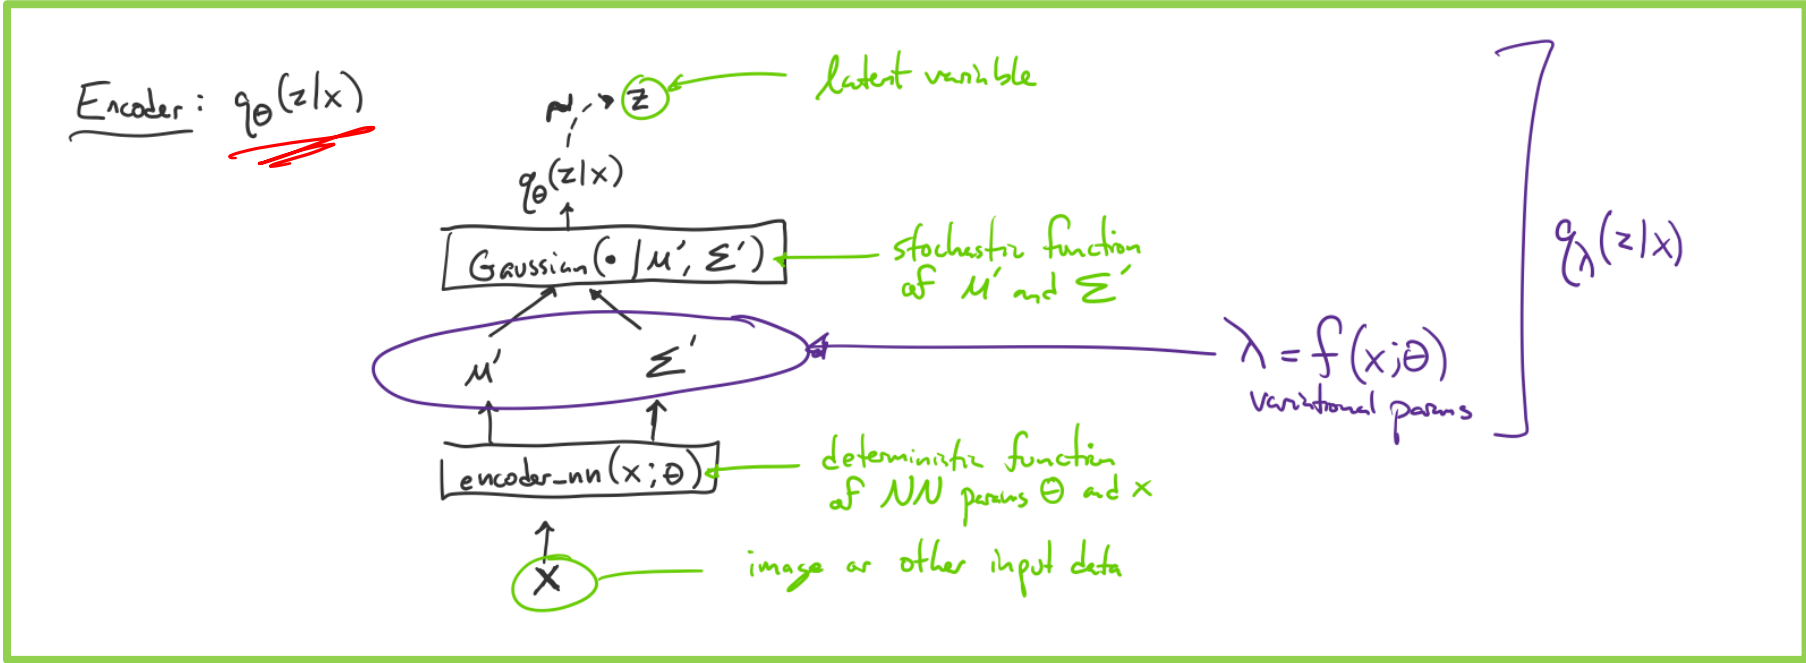 Encoder: q_θ(z|x)
~ z
latent variable
q_θ(z|x)
Gaussian(• | μ', Σ')
stochastic function
of μ' and Σ'
q_λ(z|x)
μ' Σ'
λ = f(x;θ)
variational params
encoder_nn(x;θ)
deterministic function
of NN params θ and x
x
image or other input data